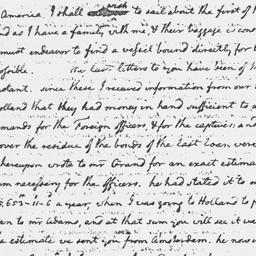 America, I shall wish to sail about the first of
and as I have a family with me, & their baggage is con
must endeavor to find a vessel bound directly, for
possible. The last letters to you have been of
stant. since these I received information from our
olland that they had money in hand sufficient to a
mands for the Foreign officers, & for the captives: and
over the residue of the bonds of the last loan, were
hereupon wrote to mr Grand for an exact estima
um necessary for the officers. he had stated it to m
5,653 - 11 - 6 a year, when I was going to Holland to
an to mr Adams, and at that sum you will see it we
he estimate we sent you from Amsterdam. he now in